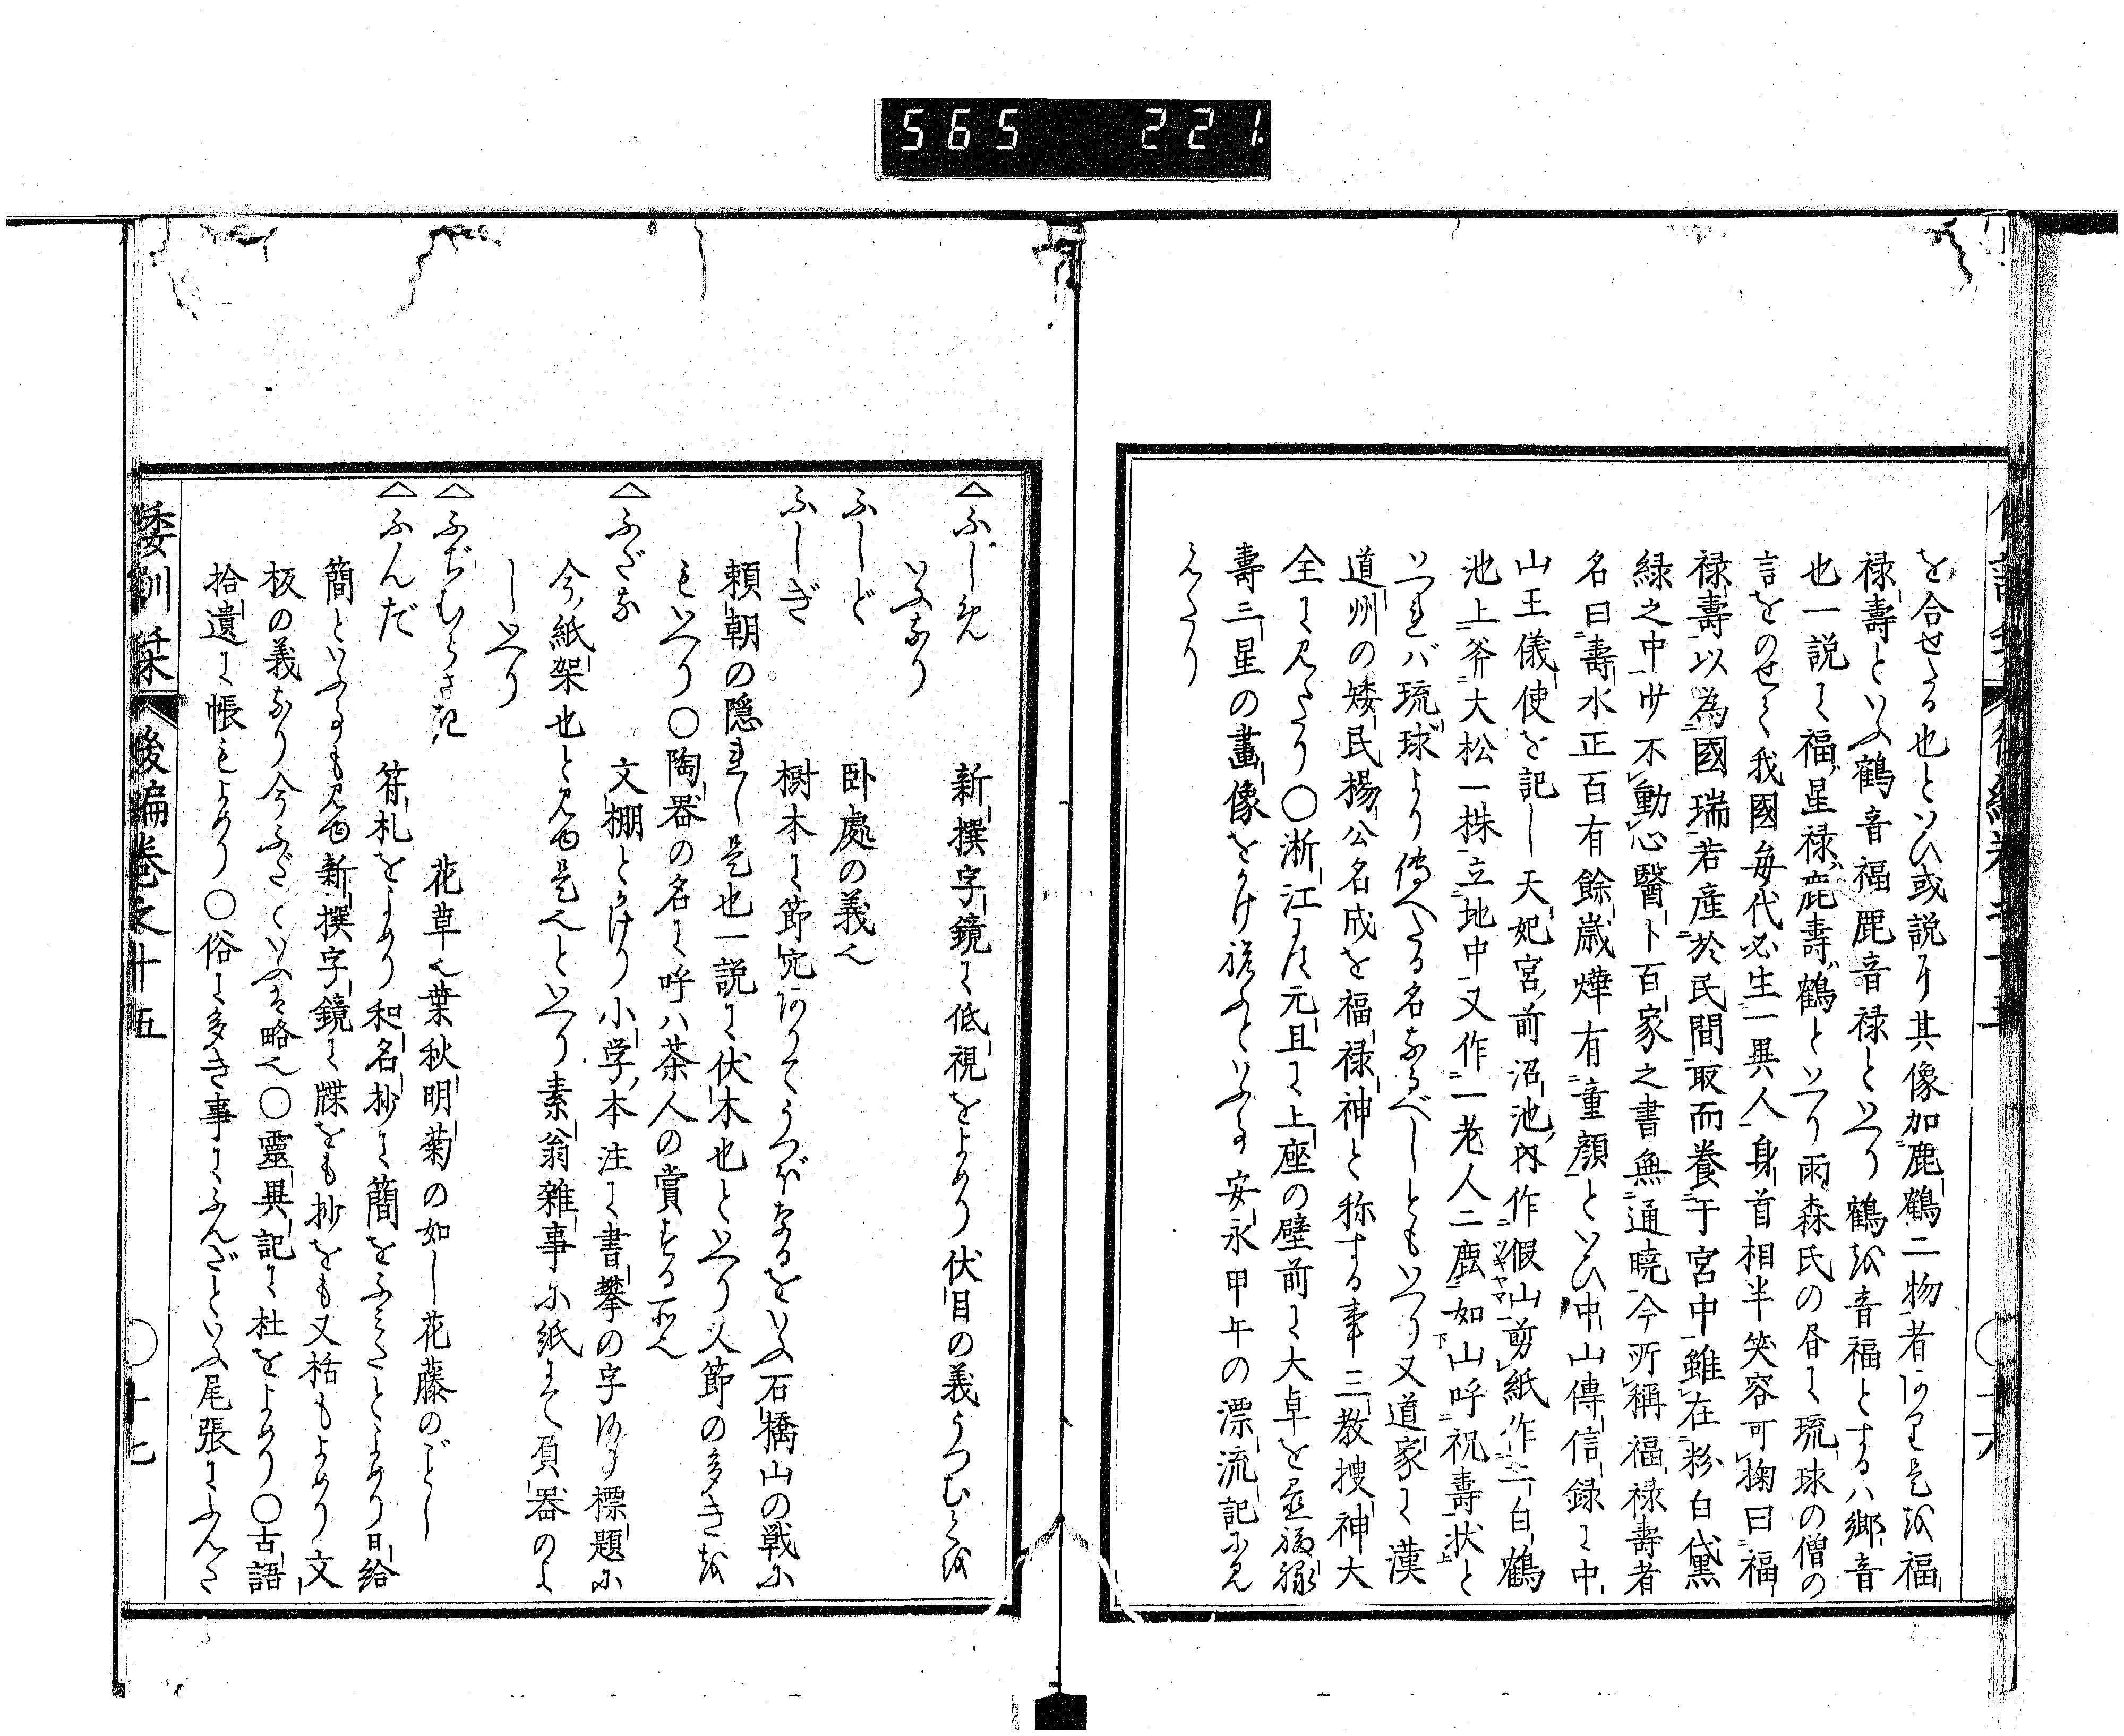 565 221
を合せたる也といひ或説に其像加鹿鶴二物者ありこれ是を福
禄壽といふ鶴音福鹿音禄といへり鶴を音福とするハ郷音
也一説に福ハ星禄ハ鹿壽ハ鶴といへり雨森氏の名に琉球の僧の
言をのせて我國毎代必生一異人身首相半笑容可掬曰福
禄壽以為國瑞若産於民間取而養于宮中雖在粉白黛
緑之中毋不動心醫卜百家之書無通暁今所稱福禄壽者
名曰壽水正百有餘歳燁有童顔といひ中山傳信録に中
山王儀使を記し天妃宮前沼池内作假山剪紙作二白鶴
池上斧大松一株立地中又作一老人二鹿如山呼祝壽状と
いへれバ琉球より傳へたる名なるべしともいへり又道家に漢
道州の矮民楊公名成を福禄神と称する事三教捜神大
全に見えたり〇淅江にハ元旦に上座の壁前に大卓を並福禄
壽三星の畫像をかけ祝ふといふ事安永甲午の漂流記に見
えたり
ふしめ 新撰字鏡に低視をよめり伏目の義うつむくを
いふなり
ふしど 卧處の義也
ふしぎ 樹木に節穴ありてうつぼなるをいふ石橋山の戦に
頼朝の隠れし是也一説に伏木也といへり又節の多きを
もいへり〇陶器の名に呼ハ茶人の賞する所也
ふだな 文棚とかけり小学本注に書攀の字あり標題に
今紙架也と見ゆ是也といへり素翁雑事に紙にて貭器のよ
しいへり
ふぢむらさき 花草也葉秋明菊の如し花藤のごとし
ふんだ 符札をよめり和名抄に簡をふみたとよめり日給
簡といふ事も見ゆ新撰字鏡に牒をも抄をも又栝もよめり文
板の義なり今ふだといふは略也〇靈異記に杜をよめり〇古語
拾遺に帳もよめり〇俗に多き事にふんだといふ尾張にふんた
倭訓栞 後編巻之十五 〇十七